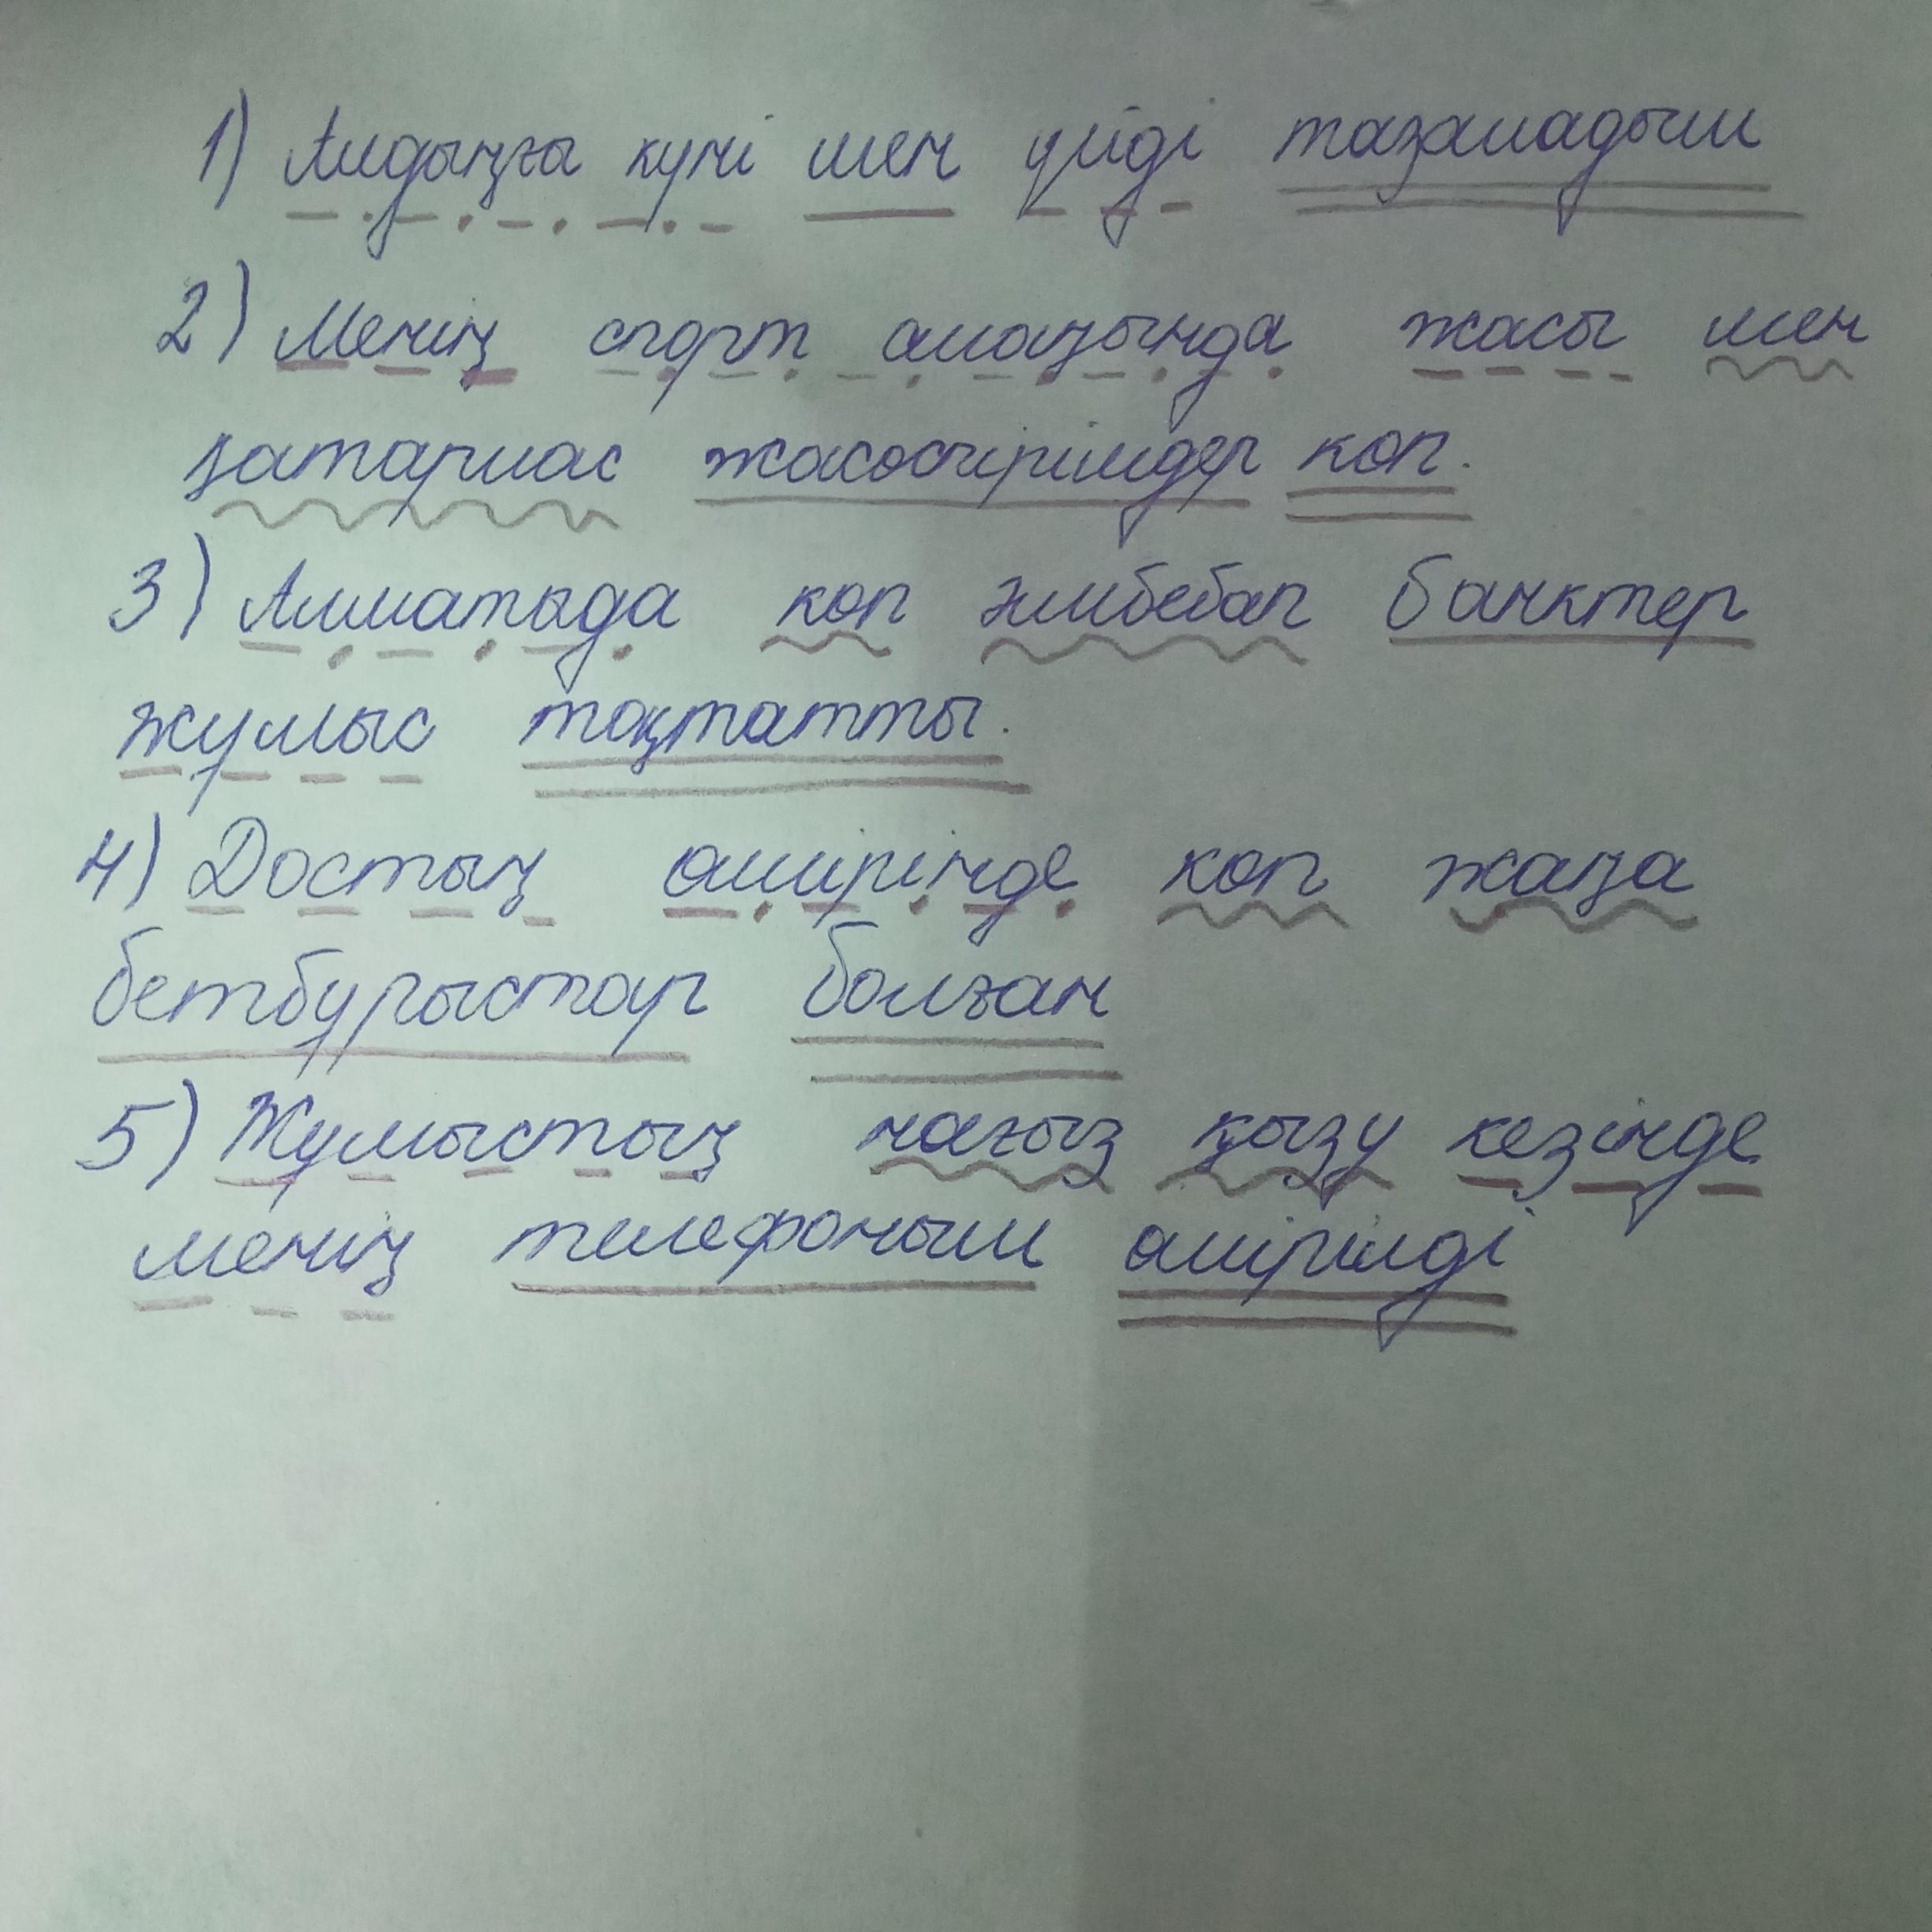 1) Алдыңғы күні мен үйді тазаладым
2) Менің спорт алаңында жасы мен
қатарлас жасөспірімдер көп.
3) Алматыда көп әмбебап банктер
жұмыс тоқтатты.
4) Достың өмірінде көп жаңа
бетбұрыстар болған
5) Жұмыстың нағыз қызу кезінде
менің телефоным өшірілді